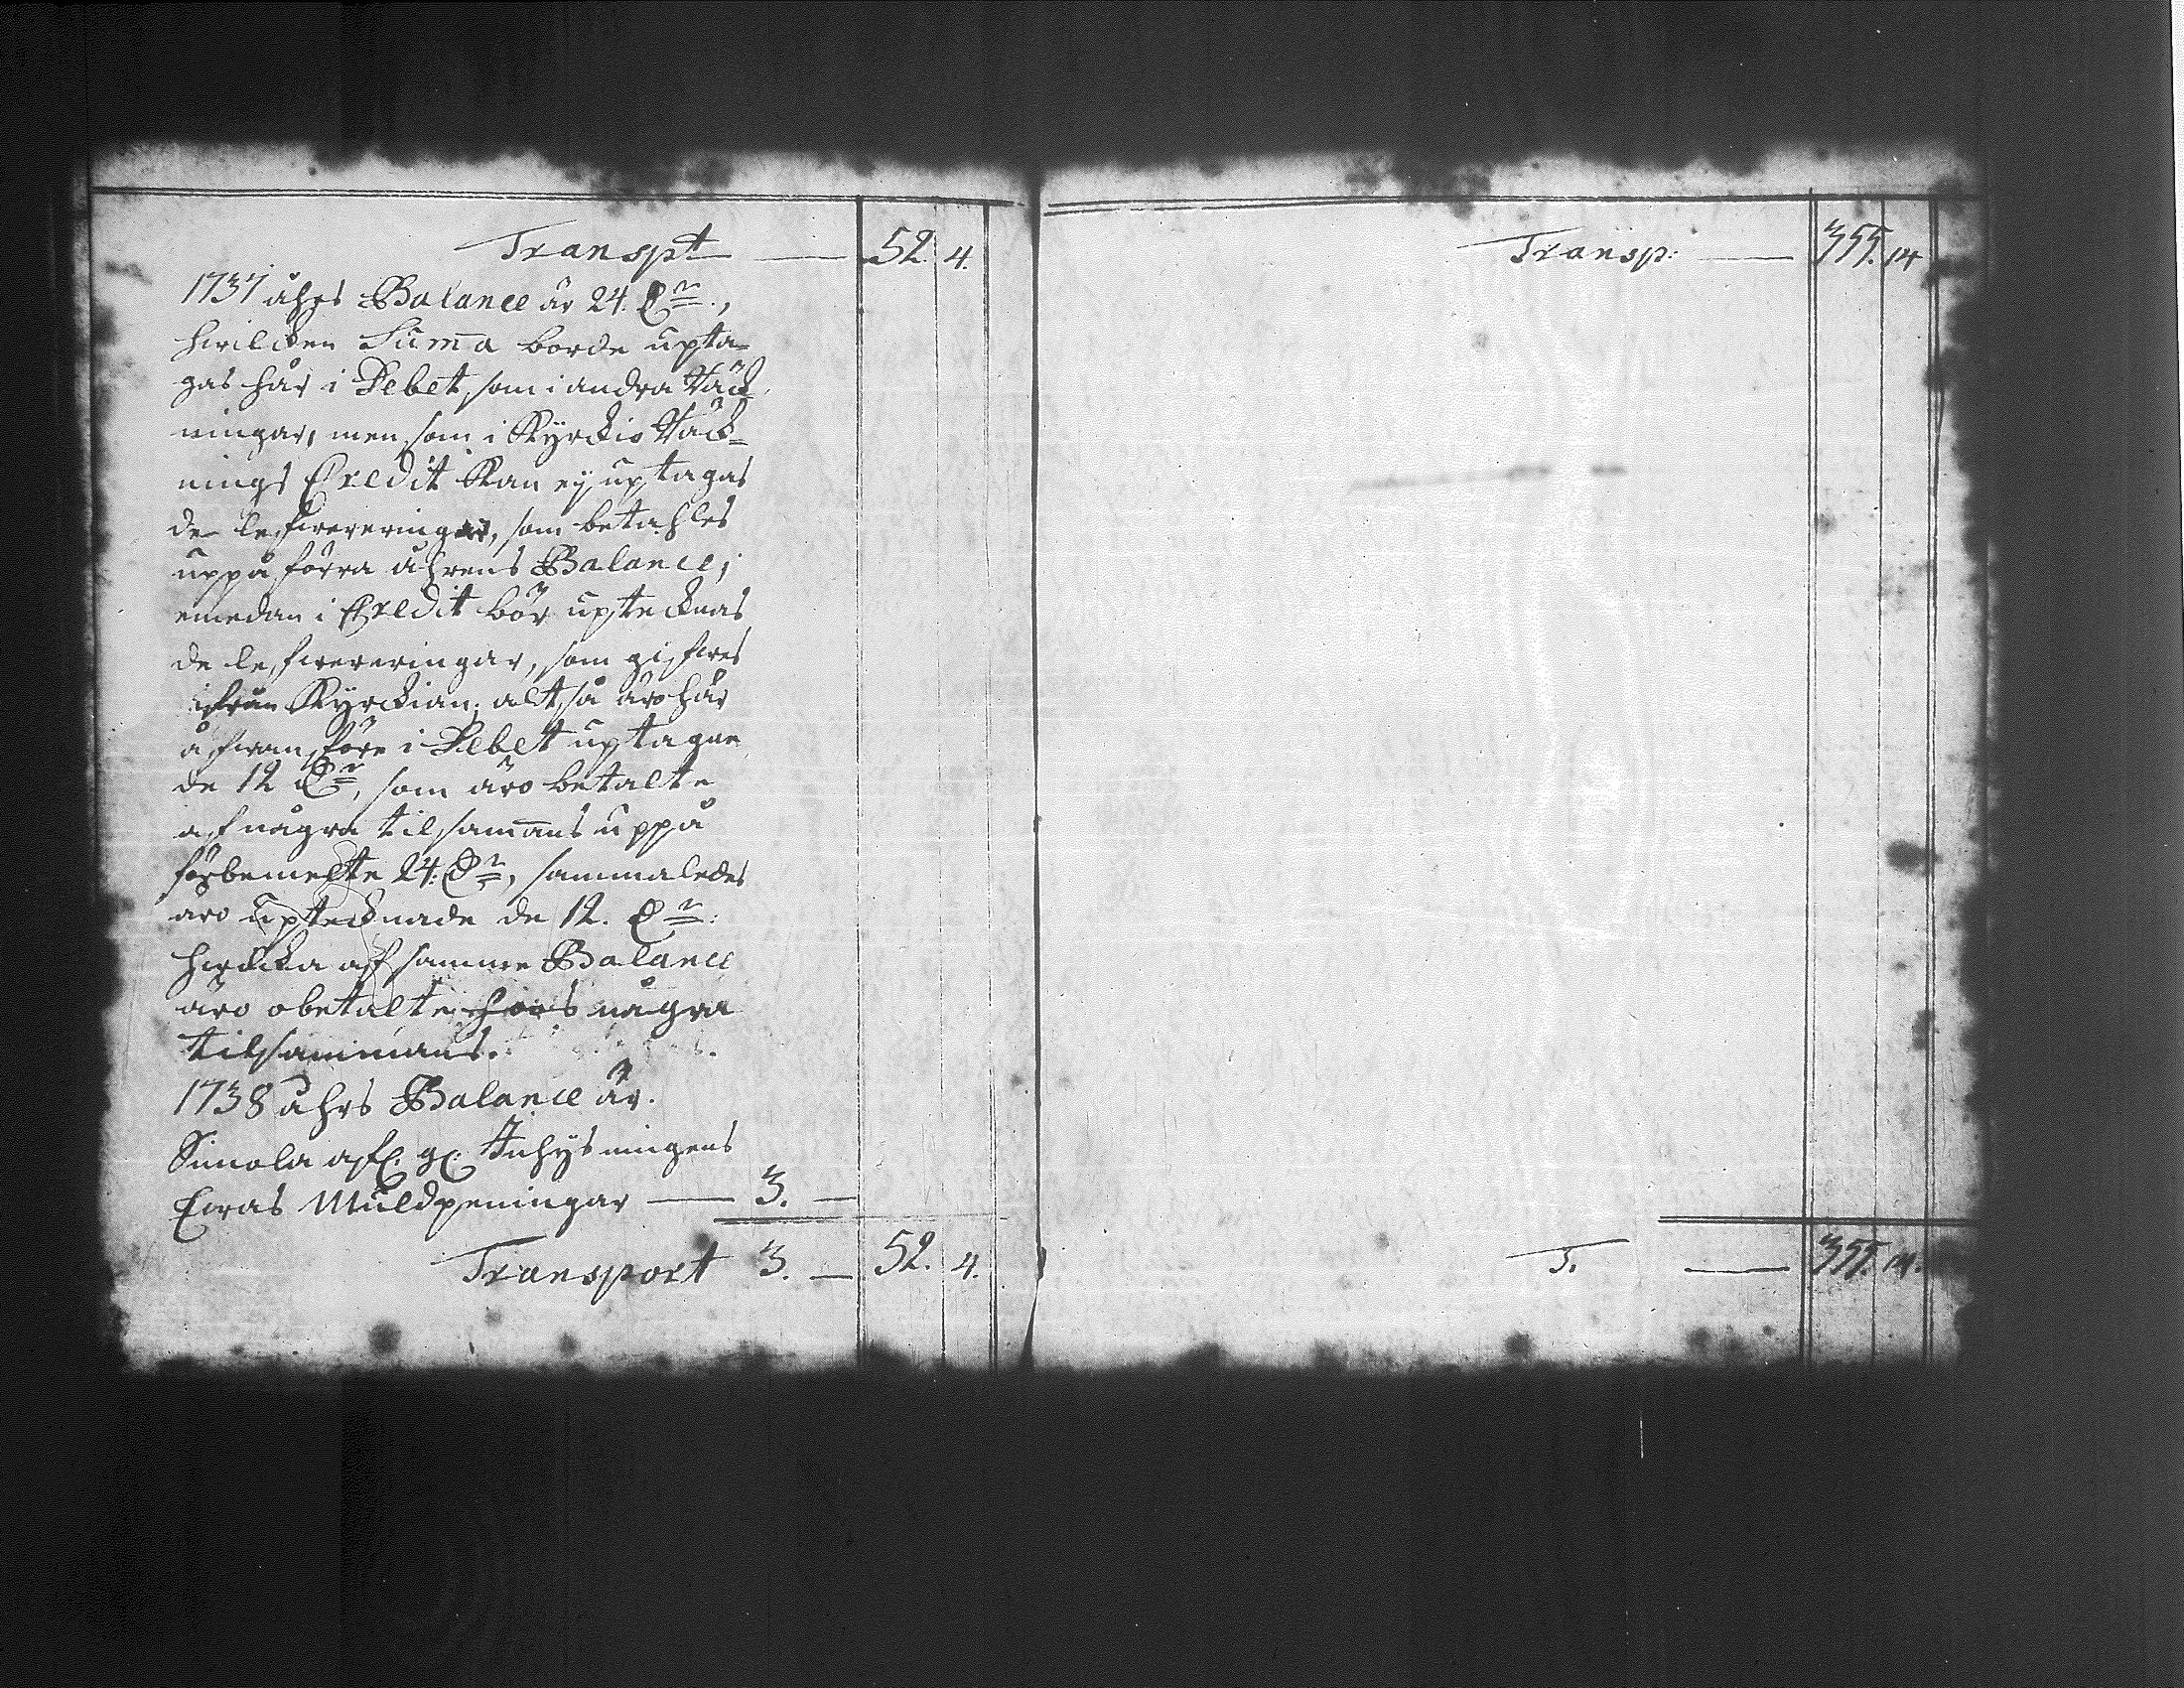 Transpt — 52. 4.
1737 åhrs Balance är 24. Dr.,
hwilcken Summa borde upta-
gas här i Debet, som i andra Räck-
ningar, men som i Kyrckio Räck-
nings Credit kan ej uptagas
de lefwereringar, som betahles
uppå förra åhrens Balance;
emedan i Credit bör uptecknas
de lefwereringar, som gifwes
ifrån Kyrckian; altså äro här
åfwanföre i Debet uptagne
de 12 Dr, som äro betalte
af några tilsamans uppå
förbemelte 24: Dr, sammaledes
äro uptecknade de 12. Dr:
hwilcka af samme Balance
äro obetalte hoos några
tilsammans.
1738 åhrs Balance är.
Simola afl. gl. Inhysningens
Ewas Muldpeningar — 3. —
Transport 3. — 52. 4.
Transp: — 355. 14
T. — 355. 14.